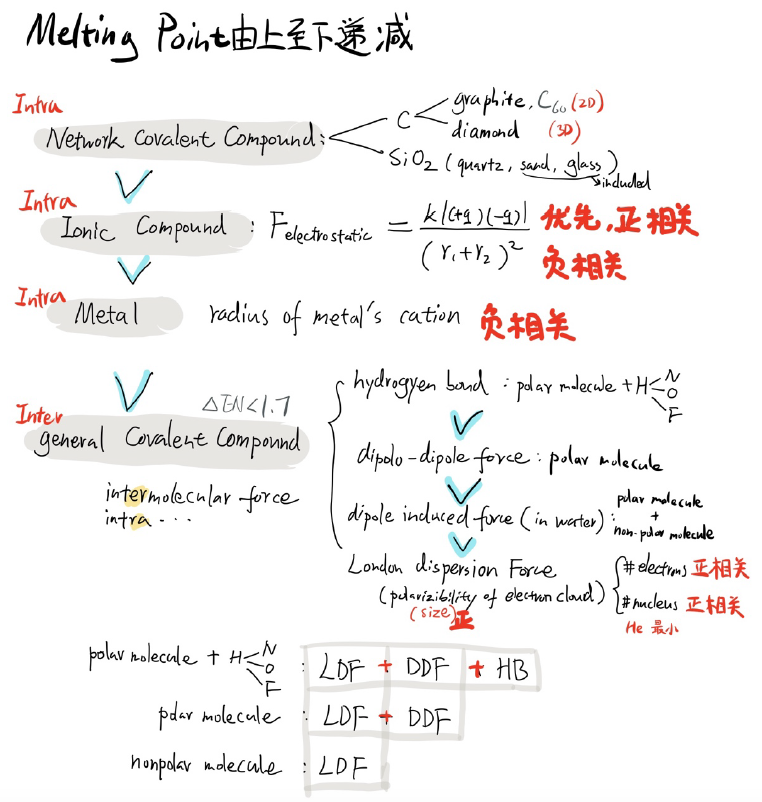 Melting Point由上至下递减
Intra
Network Covalent Compound:
C
graphite, C60 (2D)
diamond (3D)
SiO2 (quartz, sand, glass)
included
Intra
Ionic Compound : Felectrostatic = k|(+q)(-q)| / (r1+r2)^2
优先,正相关
负相关
Intra
Metal radius of metal's cation 负相关
Inter
ΔEN<1.7
general Covalent Compound
intermolecular force
intra ...
hydrogyen bond : polar molecule + H N O F
dipolo-dipole force : polar molecule
dipole induced force (in water) : polar molecule + non-polar molecule
London dispersion Force
(polarizibility of electron cloud)
(size) 正
#electrons 正相关
#nucleus 正相关
He 最小
polar molecule + H N O F : LDF + DDF + HB
polar molecule : LDF + DDF
nonpolar molecule : LDF